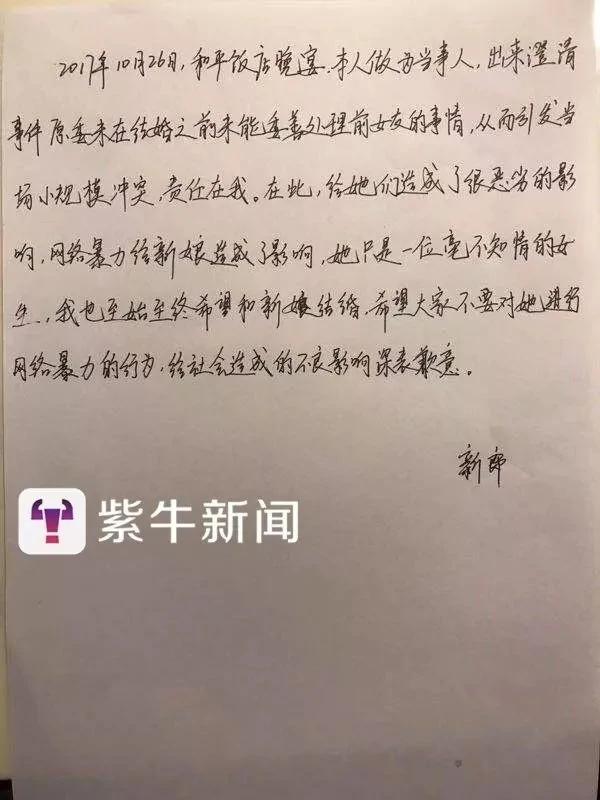 2017年10月26日，和平饭店晚宴.本人做为当事人，出来澄清
事件原委未在结婚之前未能妥善处理前女友的事情，从而引发当
场小规模冲突，责任在我。在此，给她们造成了很恶劣的影
响，网络暴力给新娘造成了影响，她只是一位毫不知情的女
生，我也至始至终希望和新娘结婚，希望大家不要对她进行
网络暴力的行为，给社会造成的不良影响深表歉意。
新郎
紫牛新闻